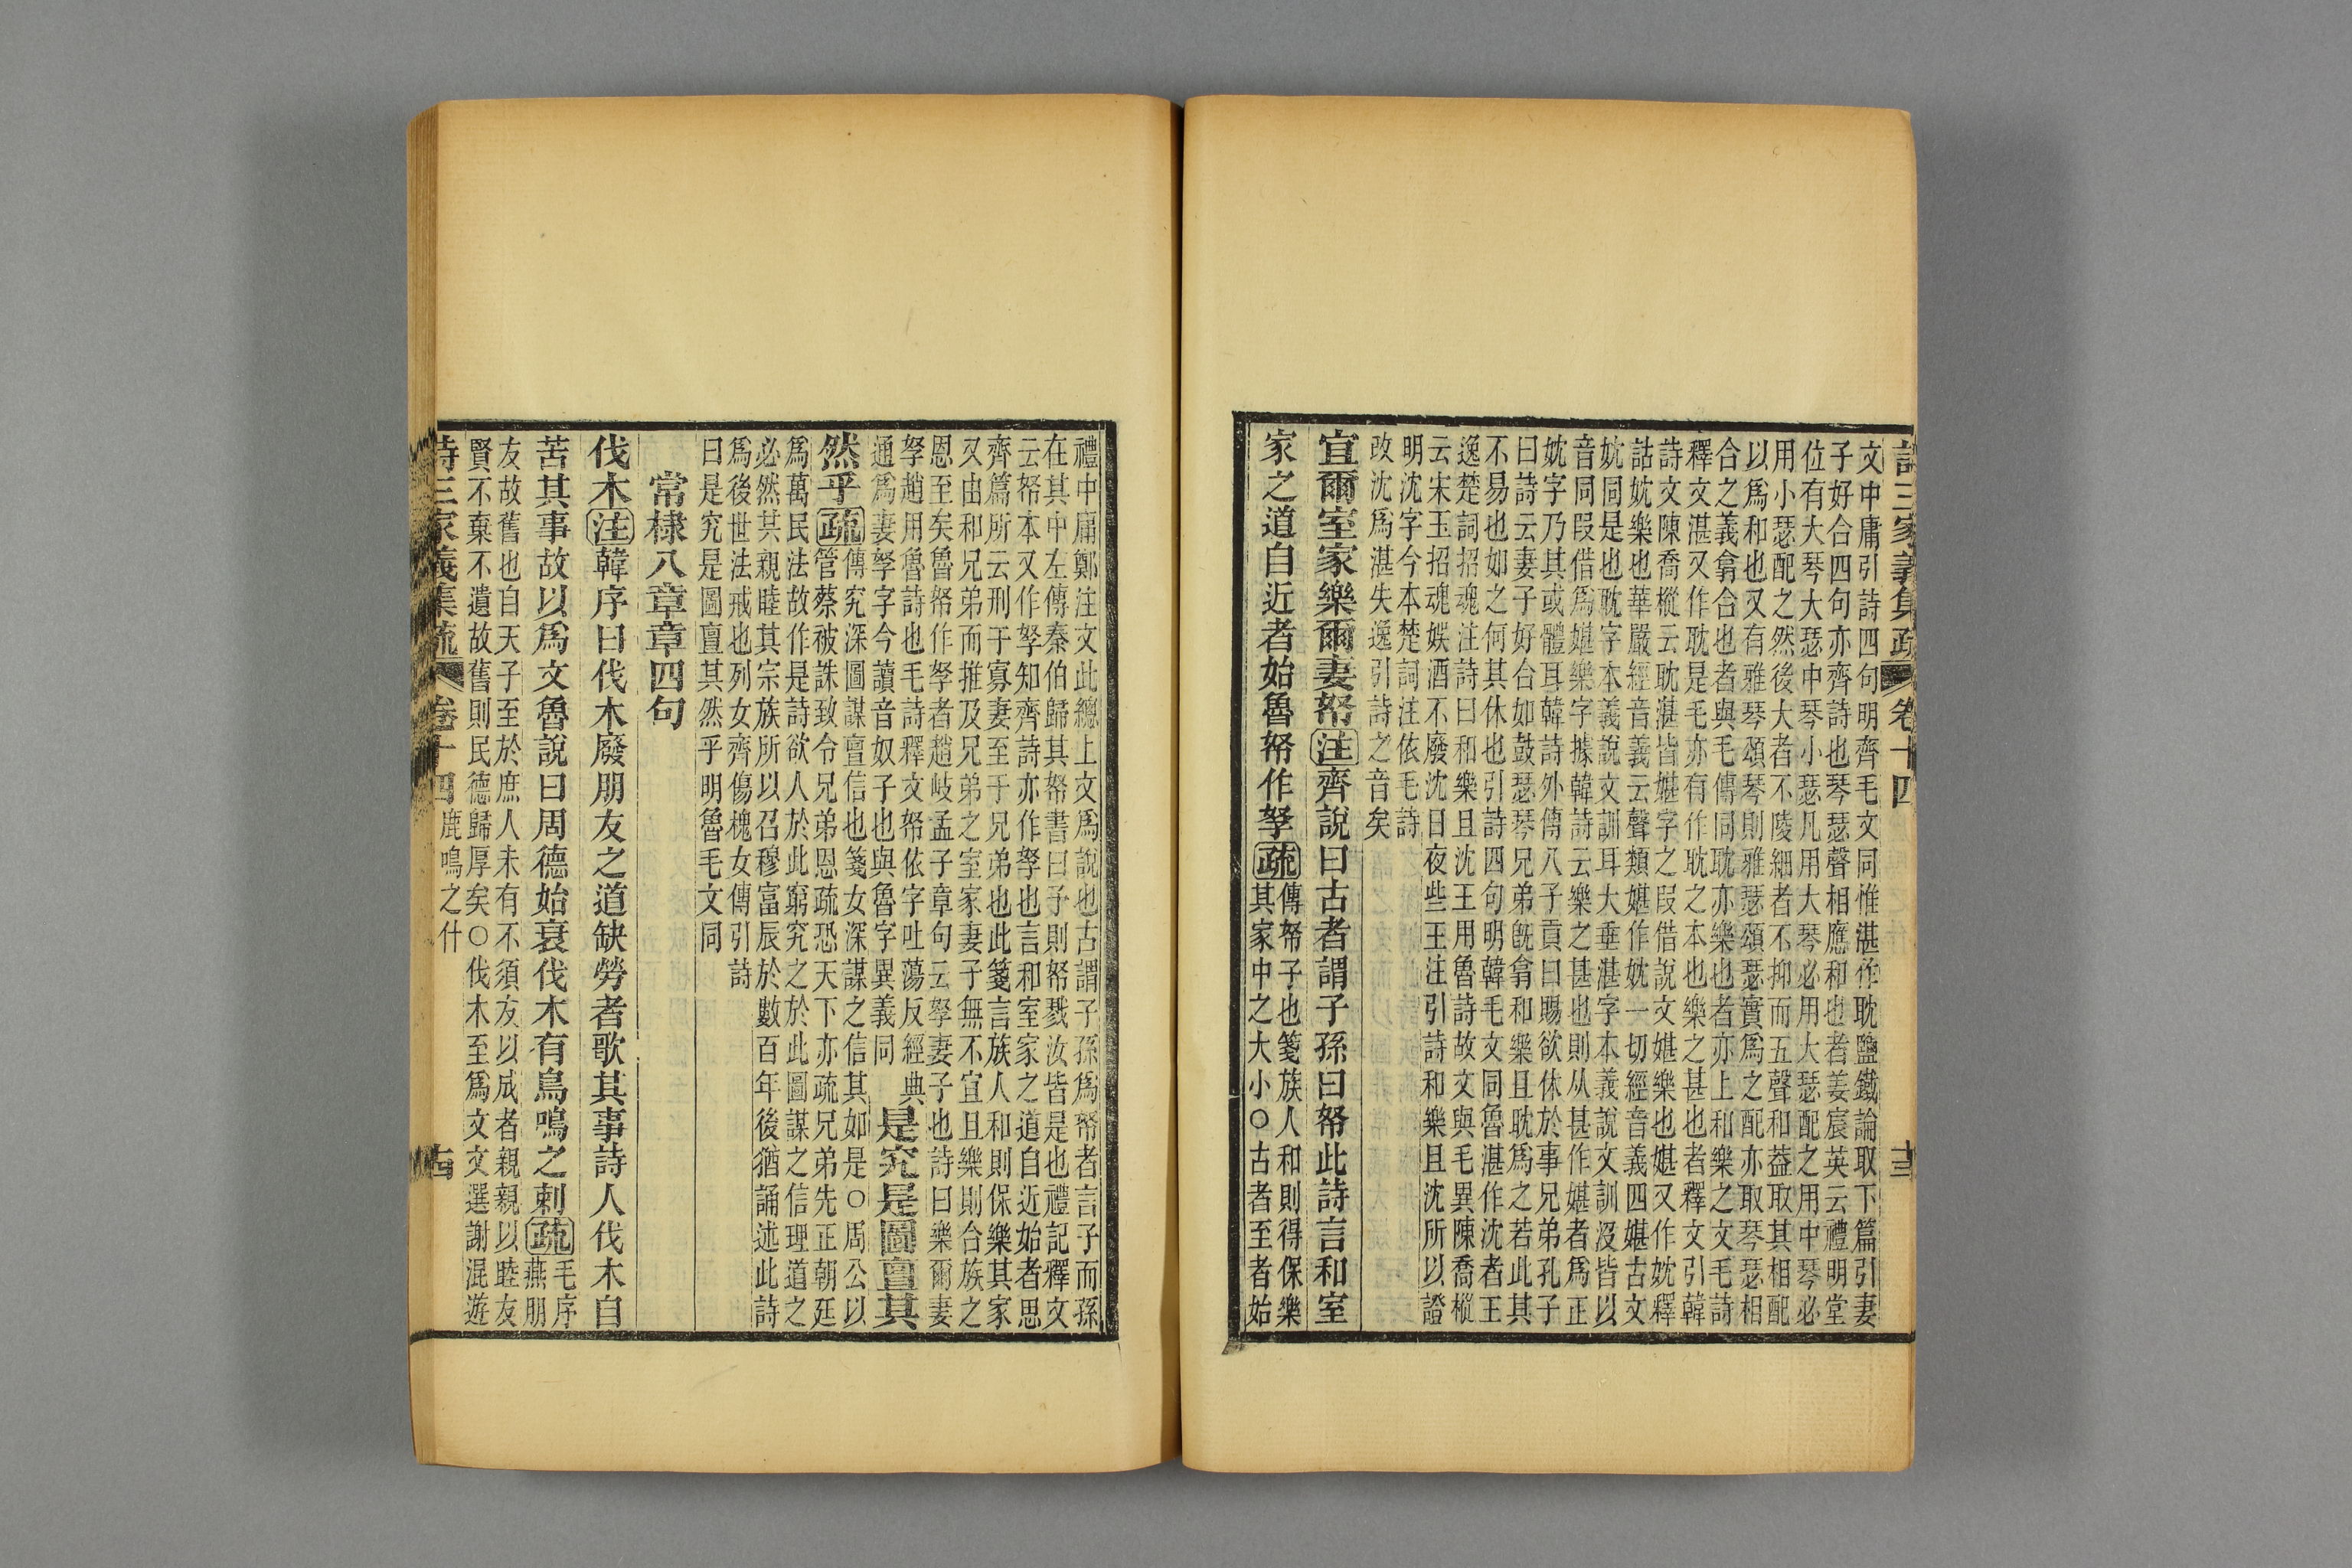 詩三家義集疏 卷十四 十三
文中庸引詩四句明齊毛文同惟湛作耽鹽鐵論取下篇引妻
子好合四句亦齊詩也琴瑟聲相應和也者姜宸英云禮明堂
位有大琴大瑟中琴小瑟凡用大琴必用大瑟配之用中琴必
用小瑟配之然後大者不陵細者不抑而五聲和益取其相配
以爲和也又有雅琴頌琴則雅瑟頌瑟實爲之配亦取琴瑟相
合之義翕合也者與毛傳同耽亦樂也者亦上和樂之文毛詩
釋文湛又作耽是毛亦有作耽之本也樂之甚也者釋文引韓
詩文陳喬樅云耽湛皆媅字之叚借說文媅樂也媅又作妉釋
詁妉樂也華嚴經音義云聲類媅作妉一切經音義四媅古文
妉同是也耽字本義說文訓耳大垂湛字本義說文訓沒皆以
音同叚借爲媅樂字據韓詩云樂之甚也則从甚作媅者爲正
妉字乃其或體耳韓詩外傳八子貢曰賜欲休於事兄弟孔子
曰詩云妻子好合如鼓瑟琴兄弟旣翕和樂且耽爲之若此其
不易也如之何其休也引詩四句明韓毛文同魯湛作沈者王
逸楚詞招魂注詩曰和樂且沈王用魯詩故文與毛異陳喬樅
云宋玉招魂娛酒不廢沈日夜些王注引詩和樂且沈所以證
明沈字今本楚詞注依毛詩
改沈爲湛失逸引詩之音矣
宜爾室家樂爾妻帑注齊說曰古者謂子孫曰帑此詩言和室
家之道自近者始魯帑作孥疏傳帑子也箋族人和則得保樂
其家中之大小○古者至者始
禮中庸鄭注文此總上文爲說也古謂子孫爲帑者言子而孫
在其中左傳秦伯歸其帑書曰予則帑戮汝皆是也禮記釋文
云帑本又作孥知齊詩亦作孥也言和室家之道自近始者思
齊篇所云刑于寡妻至于兄弟也此箋言族人和則保樂其家
又由和兄弟而推及兄弟之室家妻子無不宜且樂則合族之
恩至矣魯帑作孥者趙岐孟子章句云孥妻子也詩曰樂爾妻
孥趙用魯詩也毛詩釋文帑依字吐蕩反經典
通爲妻孥字今讀音奴子也與魯字異義同是究是圖亶其
然乎疏傳究深圖謀亶信也箋女深謀之信其如是○周公以
管蔡被誅致令兄弟恩疏恐天下亦疏兄弟先正朝廷
爲萬民法故作是詩欲人於此窮究之於此圖謀之信理道之
必然其親睦其宗族所以召穆富辰於數百年後猶誦述此詩
爲後世法戒也列女齊傷槐女傳引詩
曰是究是圖亶其然乎明魯毛文同
常棣八章章四句
伐木注韓序曰伐木廢朋友之道缺勞者歌其事詩人伐木自
苦其事故以爲文魯說曰周德始衰伐木有鳥鳴之刺疏毛序
燕朋
友故舊也自天子至於庶人未有不須友以成者親親以睦友
賢不棄不遺故舊則民德歸厚矣○伐木至爲文文選謝混遊
詩三家義集疏 卷十四 鹿鳴之什 十四